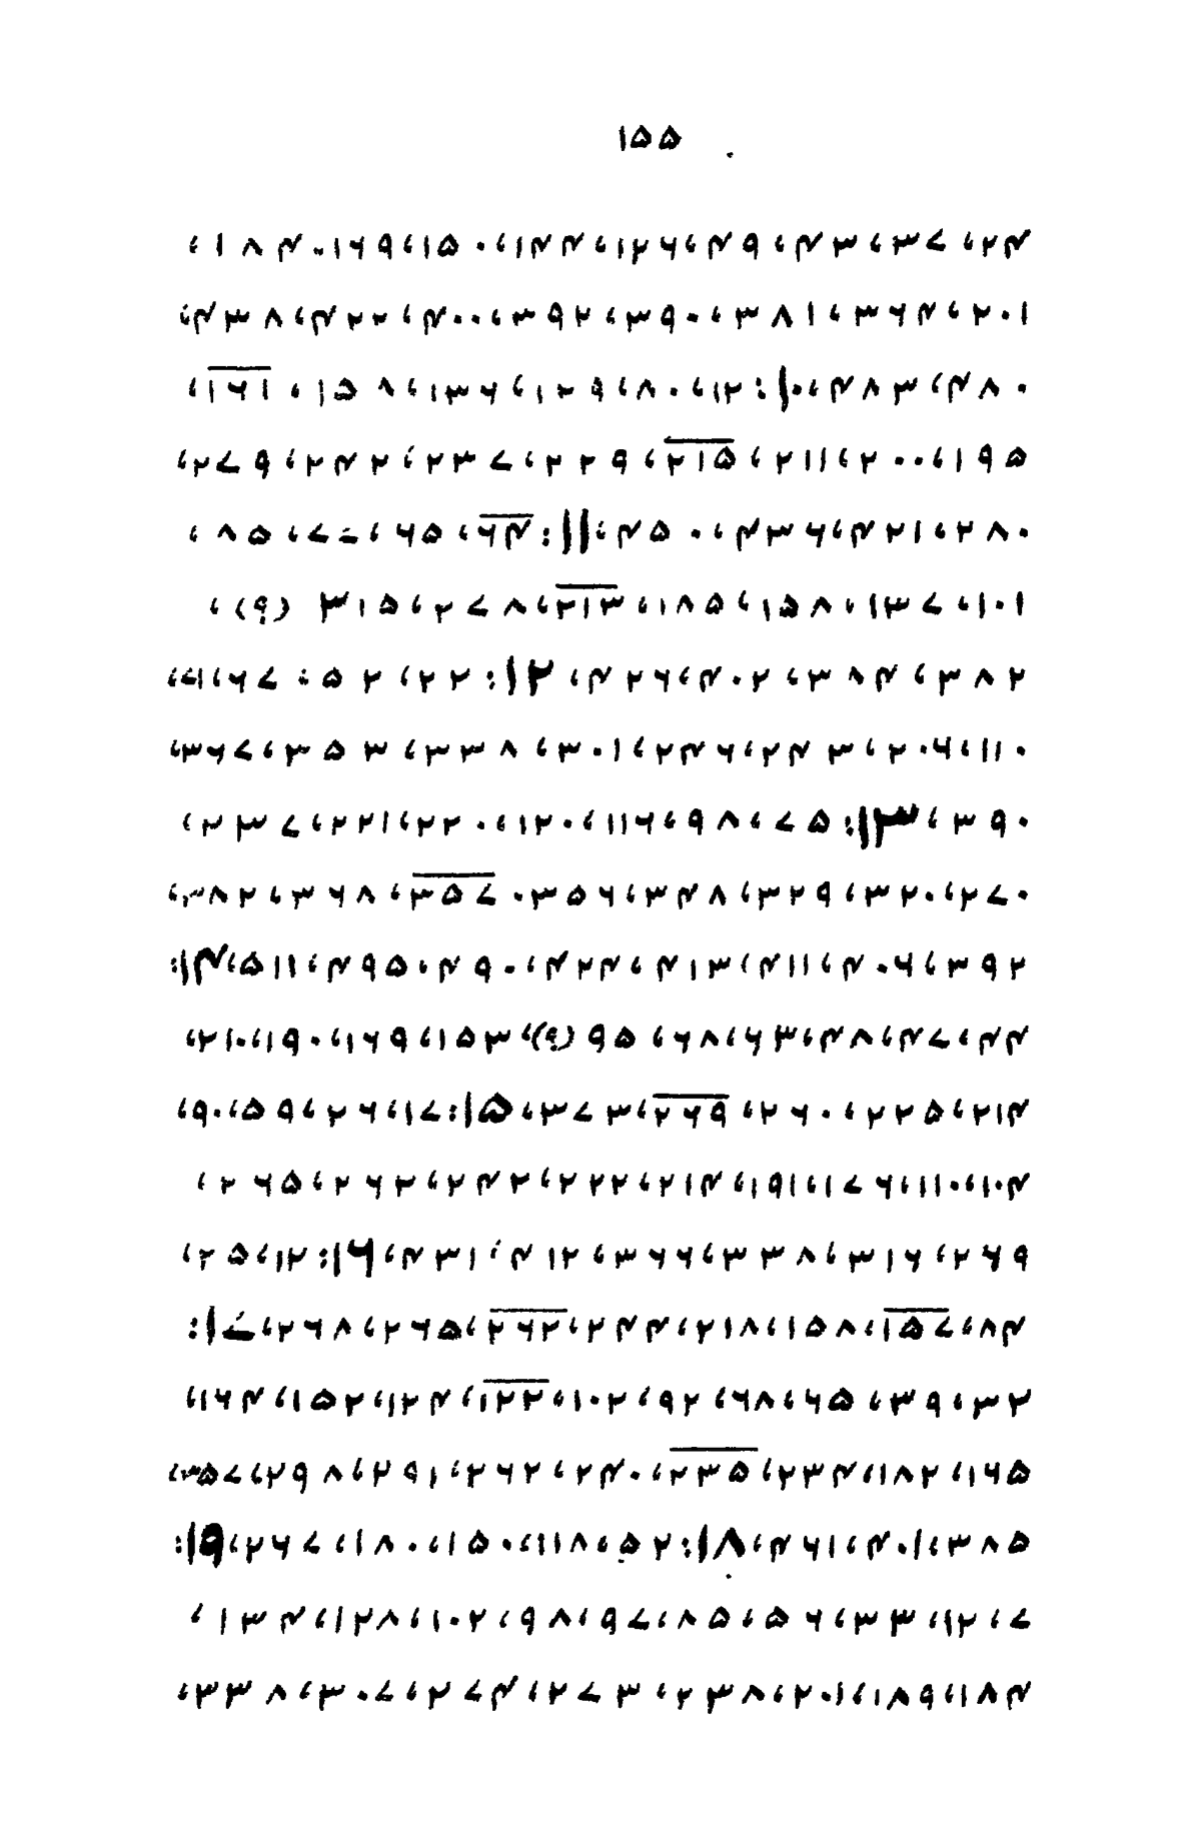 ۱۵۵
۲۴، ۳۷، ۴۳، ۴۹، ۱۲۶، ۱۴۴، ۱۵۰، ۱۶۹، ۱۸۴،
۲۰۱، ۳۶۴، ۳۸۱، ۳۹۰، ۳۹۲، ۴۰۰، ۴۲۲، ۴۳۸،
۴۸۰، ۴۸۳، ۱۰: ۱۲، ۸۰، ۱۲۹، ۱۳۶، ۱۵۸، ۱۶۱،
۱۹۵، ۲۰۰، ۲۱۱، ۲۱۵، ۲۲۹، ۲۳۷، ۲۴۲، ۲۷۹،
۲۸۰، ۴۲۱، ۴۳۶، ۴۵۰، ۱۱: ۶۴، ۶۵، ۸۵،
۱۰۱، ۱۳۷، ۱۵۸، ۱۸۵، ۲۱۳، ۲۷۸، ۳۱۵ (؟)،
۳۸۲، ۳۸۴، ۴۰۲، ۴۲۶، ۱۲: ۲۲، ۵۲، ۶۷،
۱۱۰، ۲۰۶، ۲۴۳، ۲۴۶، ۳۰۱، ۳۳۸، ۳۵۳، ۳۶۷،
۳۹۰، ۱۳: ۷۵، ۹۸، ۱۱۶، ۱۲۰، ۲۲۰، ۲۲۱، ۲۳۷،
۲۷۰، ۳۲۰، ۳۲۹، ۳۴۸، ۳۵۶، ۳۵۷، ۳۶۸، ۳۸۲،
۳۹۲، ۴۰۶، ۴۱۱، ۴۱۳، ۴۲۴، ۴۹۰، ۴۹۵، ۵۱۱، ۱۴:
۴۴، ۴۷، ۴۸، ۶۳، ۶۸، ۹۵ (؟)، ۱۵۳، ۱۶۹، ۱۹۰، ۲۱۰،
۲۱۴، ۲۲۵، ۲۶۰، ۲۶۹، ۳۷۳، ۱۵: ۱۷، ۲۶، ۵۹، ۹۰،
۱۰۴، ۱۱۰، ۱۷۶، ۱۹۱، ۲۱۴، ۲۲۲، ۲۴۲، ۲۶۲، ۲۶۵،
۲۶۹، ۳۱۶، ۳۳۸، ۳۶۶، ۴۱۲، ۴۳۱، ۱۶: ۱۲، ۲۵،
۴۸، ۱۵۷، ۱۵۸، ۲۱۸، ۲۴۴، ۲۶۲، ۲۶۵، ۲۶۸، ۱۷:
۳۲، ۳۹، ۶۵، ۶۸، ۹۲، ۱۰۲، ۱۲۲، ۱۲۴، ۱۵۲، ۱۶۴،
۱۶۵، ۱۸۲، ۲۳۴، ۲۳۵، ۲۴۰، ۲۶۲، ۲۹۱، ۲۹۸، ۳۵۷،
۳۸۵، ۴۰۱، ۴۶۱، ۱۸: ۵۲، ۱۱۸، ۱۵۰، ۱۸۰، ۲۶۷، ۱۹:
۷، ۱۲، ۳۳، ۵۶، ۸۵، ۹۷، ۹۸، ۱۰۲، ۱۲۸، ۱۳۴،
۱۸۴، ۱۸۹، ۲۰۱، ۲۳۸، ۲۷۳، ۲۷۴، ۳۰۷، ۳۳۸،